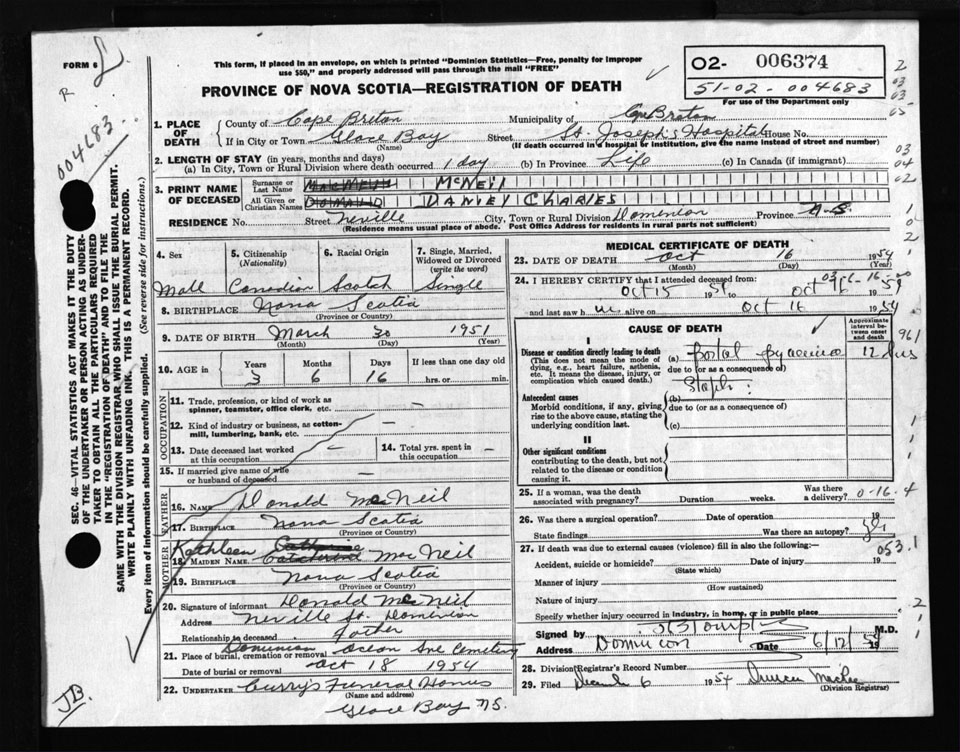 FORM 6
R
This form, if placed in an envelope, on which is printed "Dominion Statistics—Free, penalty for improper
use $50," and properly addressed will pass through the mail "FREE"
O2- 006374
51-02-004683
For use of the Department only
PROVINCE OF NOVA SCOTIA—REGISTRATION OF DEATH
004683
1. PLACE OF DEATH
County of Cape Breton Municipality of Cape Breton
If in City or Town Glace Bay Street St. Joseph's Hospital House No.
(Name) (If death occurred in a hospital or institution, give the name instead of street and number)
2. LENGTH OF STAY (in years, months and days)
(a) In City, Town or Rural Division where death occurred 1 day (b) In Province Life (c) In Canada (if immigrant)
3. PRINT NAME OF DECEASED
Surname or Last Name McNeil
All Given or Christian Names Donald Danvey Charles
RESIDENCE No. Street Neville City, Town or Rural Division Dominion Province N.S.
(Residence means usual place of abode. Post Office Address for residents in rural parts not sufficient)
4. Sex
Male
5. Citizenship (Nationality)
Canadian
6. Racial Origin
Scotch
7. Single, Married, Widowed or Divorced (write the word)
Single
8. BIRTHPLACE Nova Scotia
(Province or Country)
9. DATE OF BIRTH March 30 1951
(Month) (Day) (Year)
10. AGE in
Years Months Days If less than one day old
3 6 16 hrs. or min.
OCCUPATION
11. Trade, profession, or kind of work as
spinner, teamster, office clerk, etc. —
12. Kind of industry or business, as cotton-
mill, lumbering, bank, etc. —
13. Date deceased last worked
at this occupation —
14. Total yrs. spent in
this occupation —
15. If married give name of wife
or husband of deceased —
FATHER
16. NAME Donald MacNeil
17. BIRTHPLACE Nova Scotia
(Province or Country)
MOTHER
Kathleen
18. MAIDEN NAME MacNeil
19. BIRTHPLACE Nova Scotia
(Province or Country)
20. Signature of informant Donald McNeil
Address Neville St. Dominion
Relationship to deceased father
Dominion
21. Place of burial, cremation or removal Ocean Ave Cemetery
Date of burial or removal Oct 18 1954
22. UNDERTAKER Curry's Funeral Homes
(Name and address)
Glace Bay NS.
MEDICAL CERTIFICATE OF DEATH
23. DATE OF DEATH Oct 16 1954
(Month) (Day)
24. I HEREBY CERTIFY that I attended deceased from:
Oct 15 1954 to Oct 16 1954
and last saw h im alive on Oct 16 1954
CAUSE OF DEATH
Approximate interval between onset and death
I
Disease or condition directly leading to death
(This does not mean the mode of
dying, e.g., heart failure, asthenia,
etc. It means the disease, injury, or
complication which caused death.)
(a) Portal pyaemia 12 days
due to (or as a consequence of)
Staph:
Antecedent causes
Morbid conditions, if any, giving
rise to the above cause, stating the
underlying condition last.
(b)
due to (or as a consequence of)
(c)
II
Other significant conditions
contributing to the death, but not
related to the disease or condition
causing it.
25. If a woman, was the death
associated with pregnancy? Duration weeks. Was there a delivery? 0-16.4
26. Was there a surgical operation? Date of operation 19
State findings Was there an autopsy? yes
27. If death was due to external causes (violence) fill in also the following:— 053.1
Accident, suicide or homicide? Date of injury 19
(State which)
Manner of injury
(How sustained)
Nature of injury
Specify whether injury occurred in industry, in home, or in public place
Signed by M.D.
Address Dominion Date 6/12/54 19
28. Division Registrar's Record Number
29. Filed December 6 1954
(Division Registrar)
SEC. 46—VITAL STATISTICS ACT MAKES IT THE DUTY
OF THE UNDERTAKER OR PERSON ACTING AS UNDER-
TAKER TO OBTAIN ALL THE PARTICULARS REQUIRED
IN THE "REGISTRATION OF DEATH" AND TO FILE THE
SAME WITH THE DIVISION REGISTRAR WHO SHALL ISSUE THE BURIAL PERMIT.
WRITE PLAINLY WITH UNFADING INK. THIS IS A PERMANENT RECORD.
Every item of information should be carefully supplied. (See reverse side for instructions.)
JB.